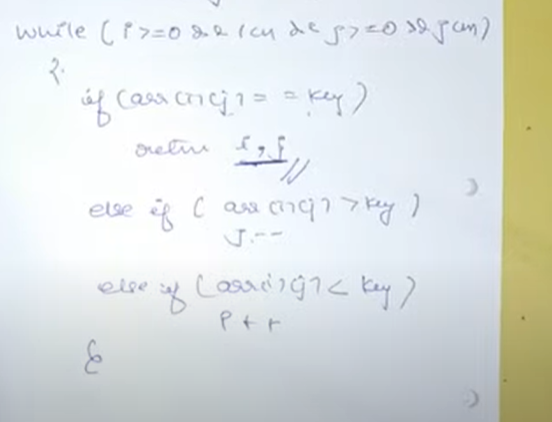 while (i>=0 && i<n && j>=0 && j<n)
{
if (arr[i][j] == key)
return i, j
else if ( arr[i][j] > key )
j--
else if (arr[i][j] < key )
i++
}